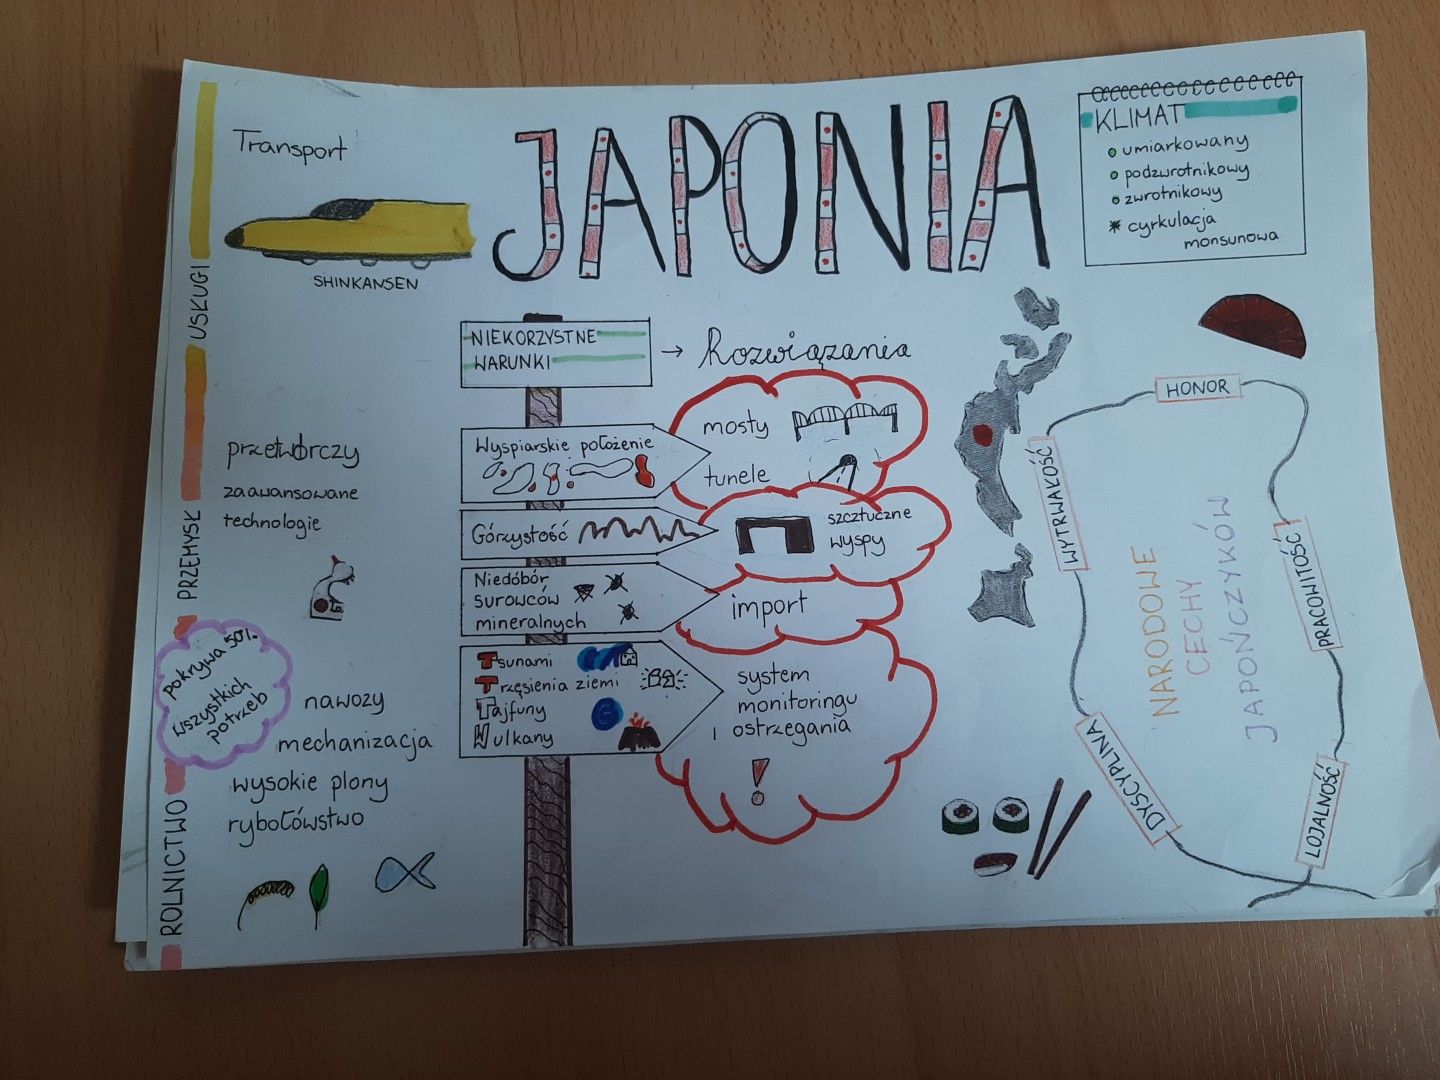 JAPONIA
KLIMAT
umiarkowany
podzwrotnikowy
zwrotnikowy
* cyrkulacja
monsunowa
USŁUGI
Transport
SHINKANSEN
PRZEMYSŁ
przetwórczy
zaawansowane
technologie
ROLNICTWO
pokrywa 50%
wszystkich
potrzeb
nawozy
mechanizacja
wysokie plony
rybołówstwo
NIEKORZYSTNE
WARUNKI
→ Rozwiązania
Wyspiarskie położenie
mosty
tunele
Górzystość
szcztuczne
wyspy
Niedóbór
surowców
mineralnych
import
Tsunami
Trzęsienia ziemi
Tajfuny
Wulkany
system
monitoringu
i ostrzegania
!
HONOR
WYTRWAŁOŚĆ
PRACOWITOŚĆ
DYSCYPLINA
LOJALNOŚĆ
NARODOWE
CECHY
JAPOŃCZYKÓW